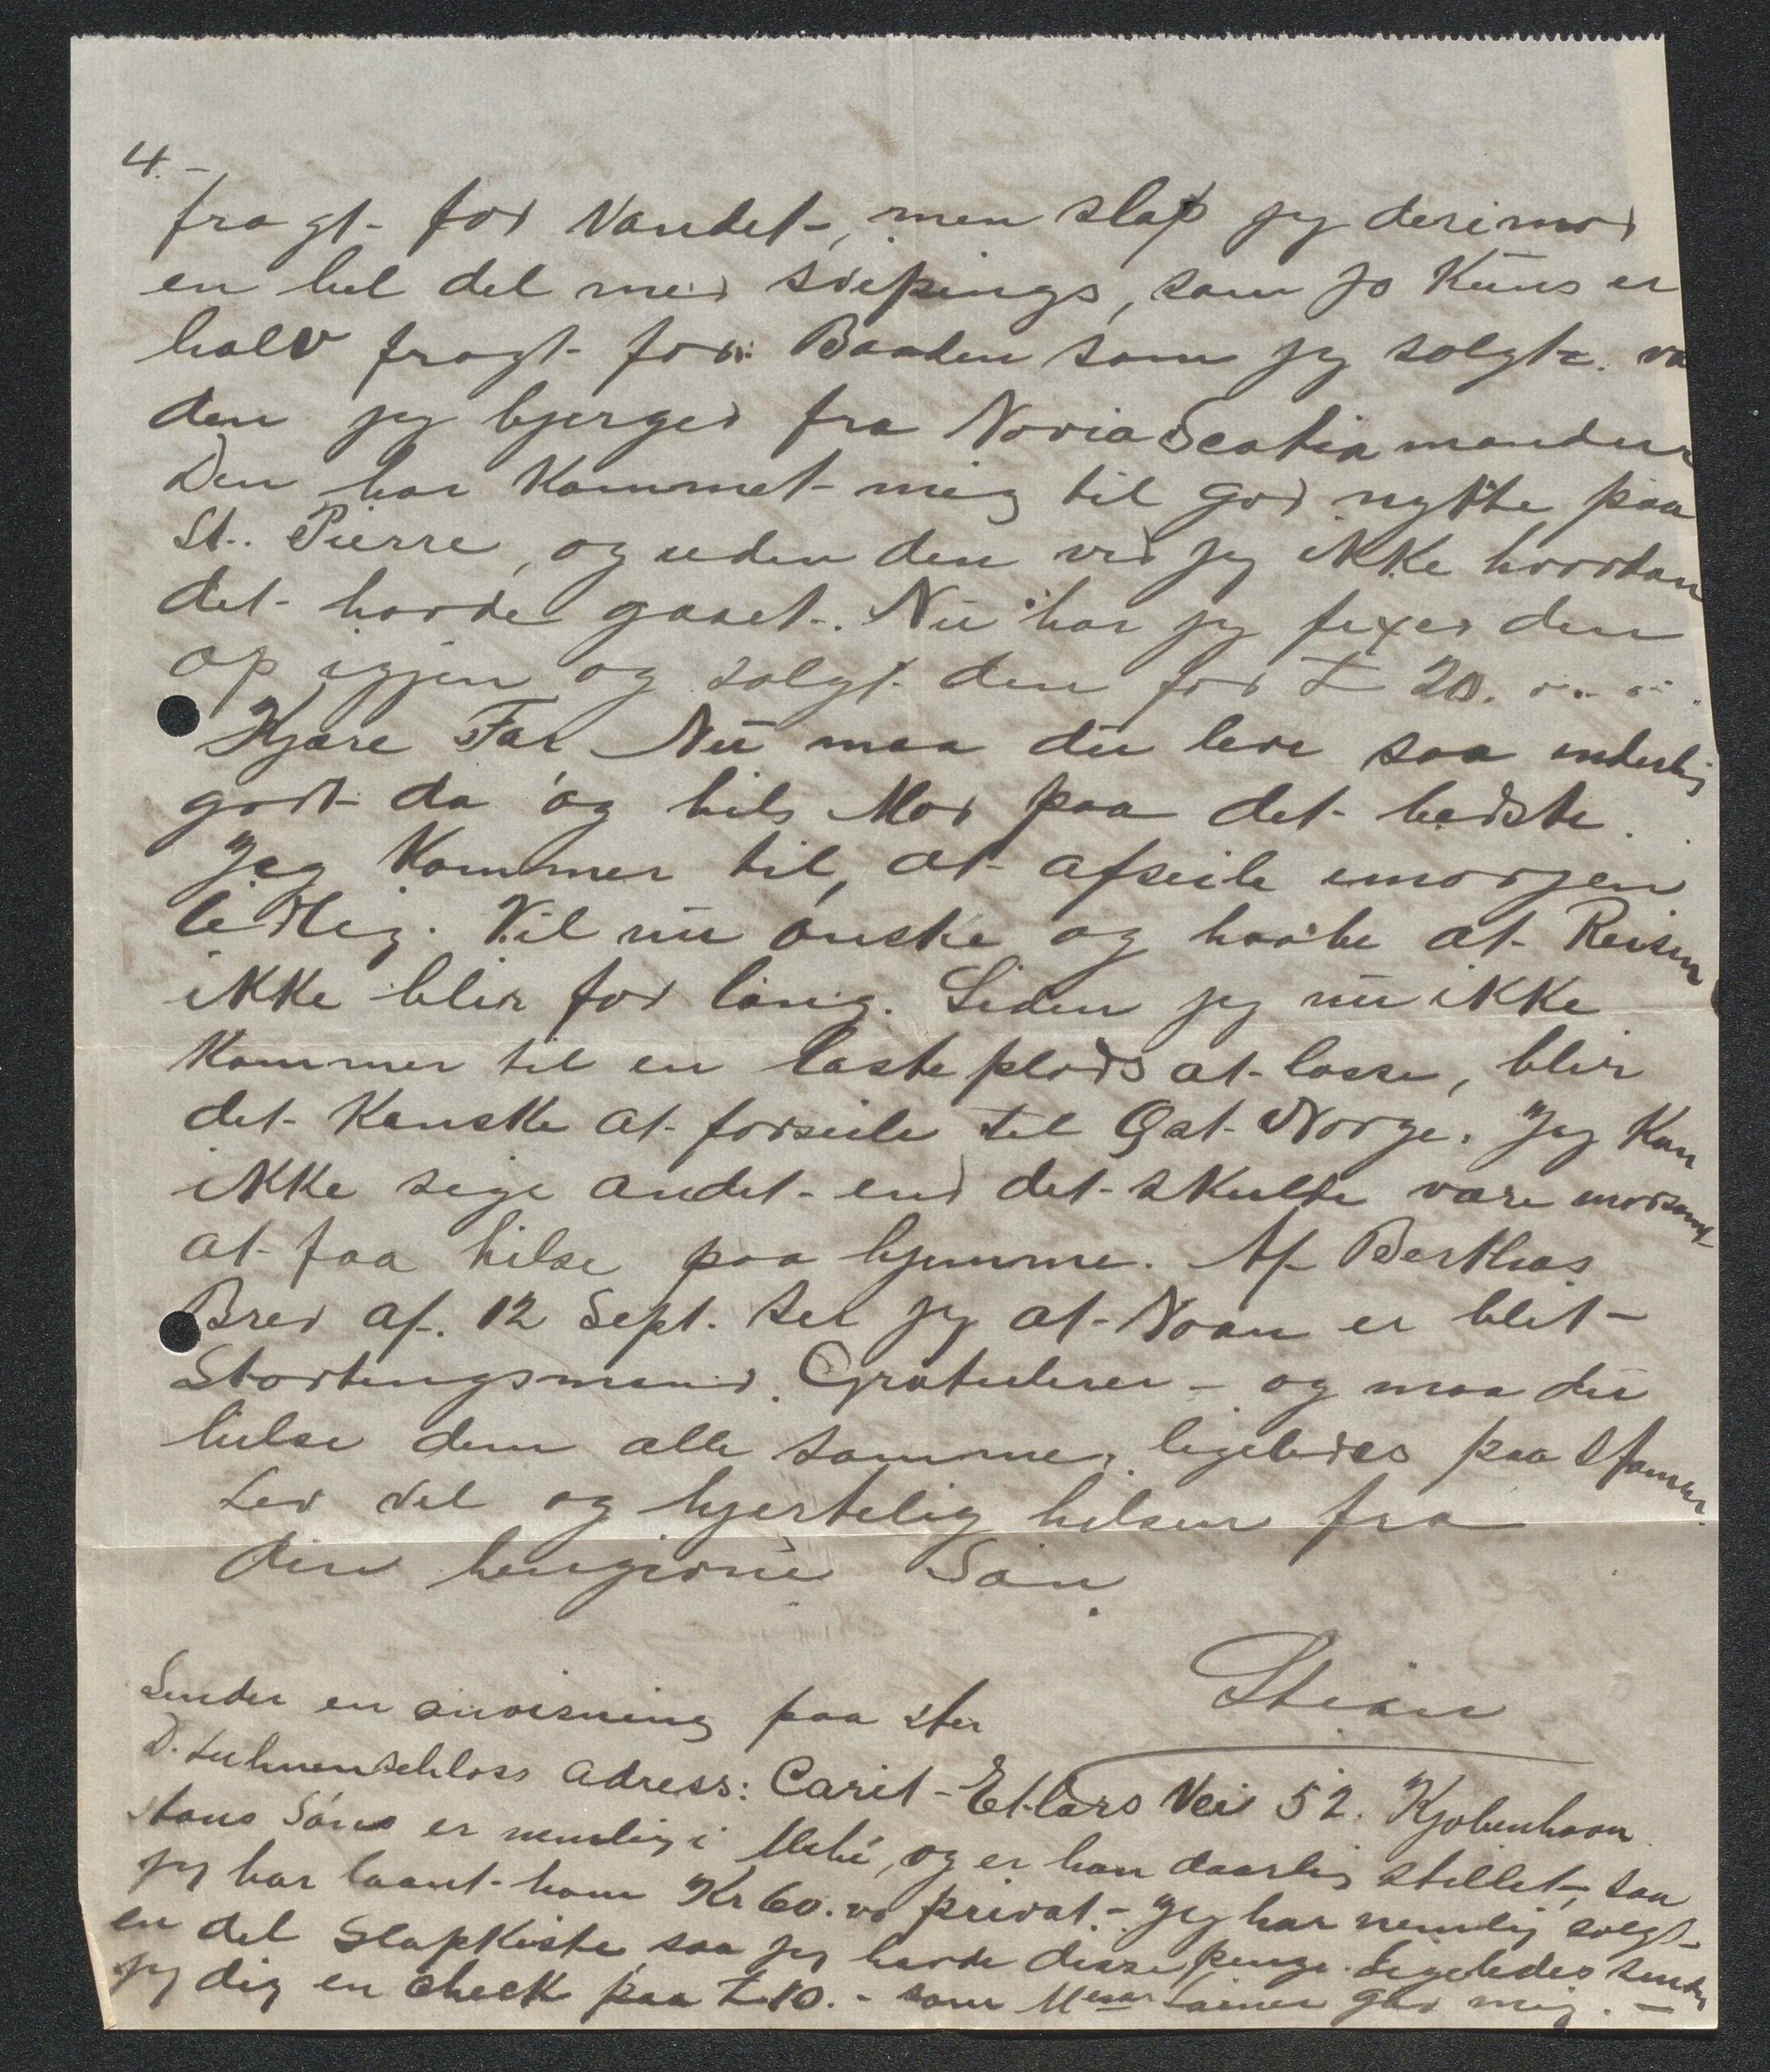 4.-
fragt for Vandet, men slap jeg derimod
en hel del med sviepings, som jo kuns er
halv fragt for. Baaden som jeg solgte. va
den jeg bjerged fra Novia Scotia manden
Den har kommet mig til god nytte paa
St. Pierre, og uden den ved jeg ikke hvordan
det havde gaaet. Nu har jeg fixed den
op igjen og solgt den for £ 20.
Kjære Far Nu maa du leve saa inderlig
godt da og hils Mor paa det bedste.
Jeg kommer til, at afseile imorgen
tidlig. Vil nu ønske og haabe at Reisen
ikke blir for lang. Siden jeg nu ikke
kommer til en lasteplads at losse, blir
det kanske at forseile til Øst Norge. Jeg kan
ikke sige andet end det skulde være morsomt
at faa hilse paa hjemme. Af Berthas
Brev af. 12 Sept. ser jeg at Noan er blit
Stortingsmand. Gratulerer - og maa du
hilse dem alle sammen, ligeledes paa
Lev vel og hjertelig hilsen fra
din hengivne Søn
Stian
Sender en anvisning paa
D. Luhnenschloss Adress: Carit-Etlars Vei 52. Kjøbenhavn
Hans Søns er nemlig i , og er han daarlig stillet, saa
jeg har laant ham Kr 60. privat. - Jeg har nemlig solgt
en del Slapkiste, saa jeg havde disse penge. Ligeledes sender
jeg dig en check paa £ 10. - som gav mig. -